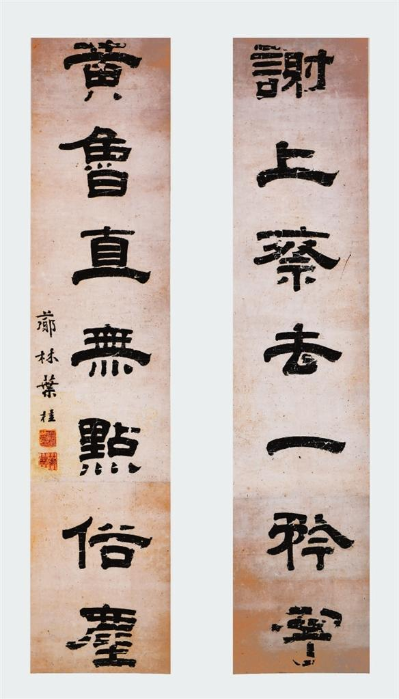 謝上蔡去一矜字
黃魯直無點俗塵
薌林葉桂